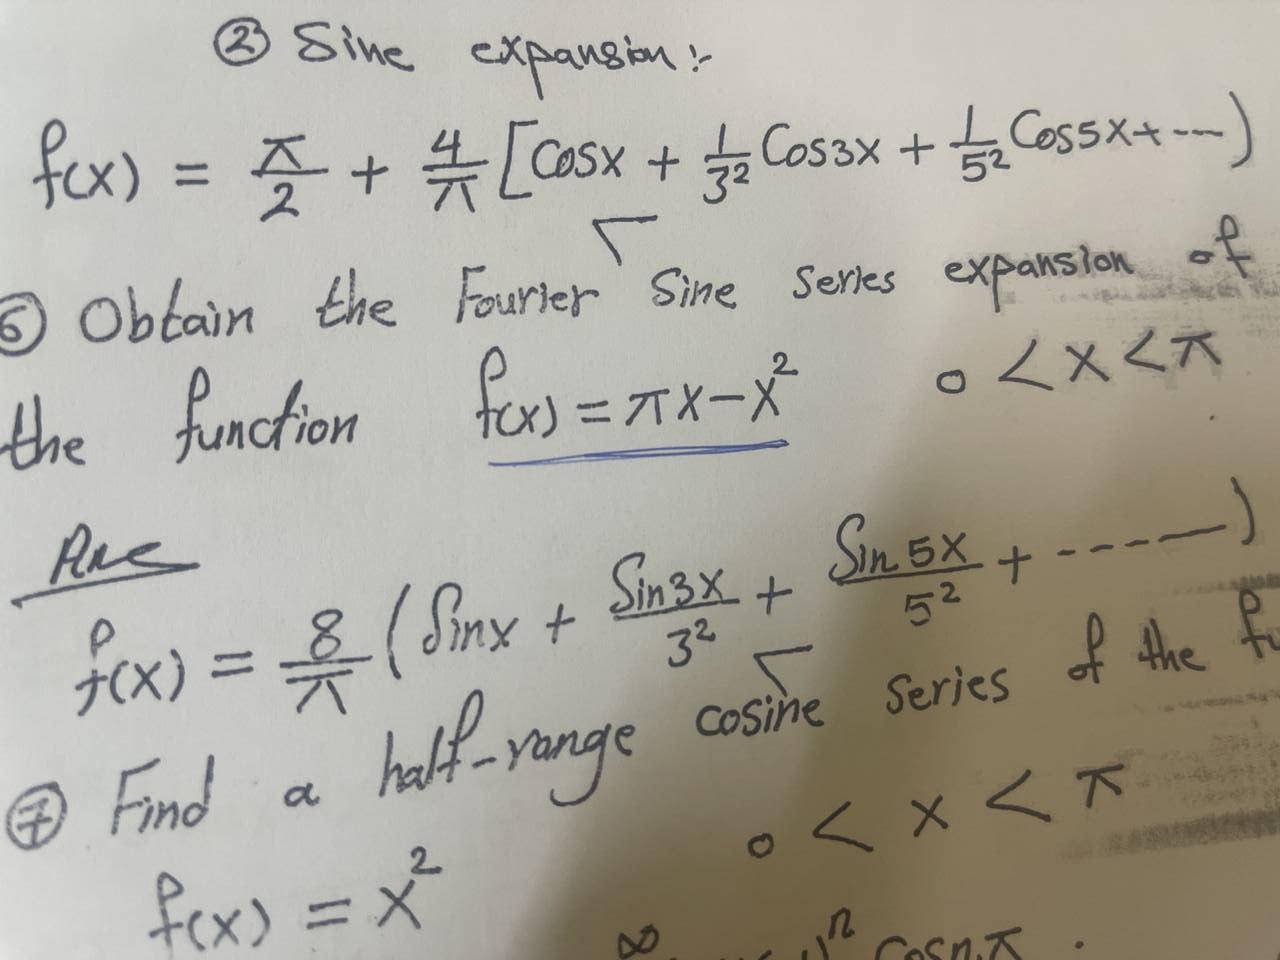 ② Sine expansion:-
f(x) = π/2 + 4/π [Cosx + 1/3² Cos3x + 1/5² Cos5x + ---)
⑥ Obtain the Fourier Sine series expansion of
the function f(x) = πx-x² 0 < x < π
Ans
f(x) = 8/π (Sinx + Sin3x/3² + Sin5x/5² + ------)
⑦ Find a half-range cosine series of the
f(x) = x² 0 < x < π
∞